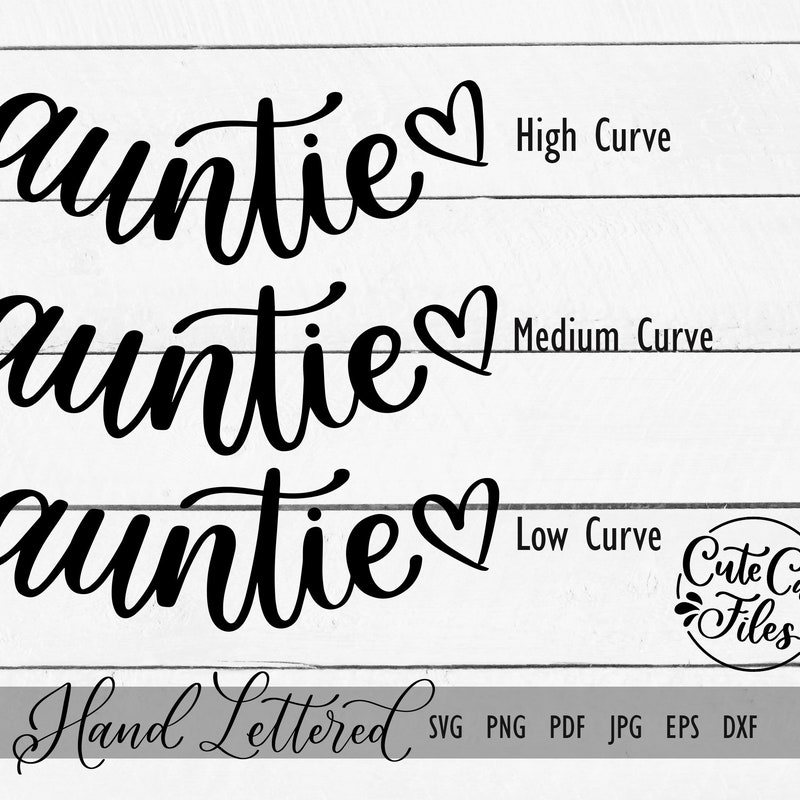 auntie High Curve
auntie Medium Curve
auntie Low Curve
Cute
Files
Hand Lettered SVG PNG PDF JPG EPS DXF